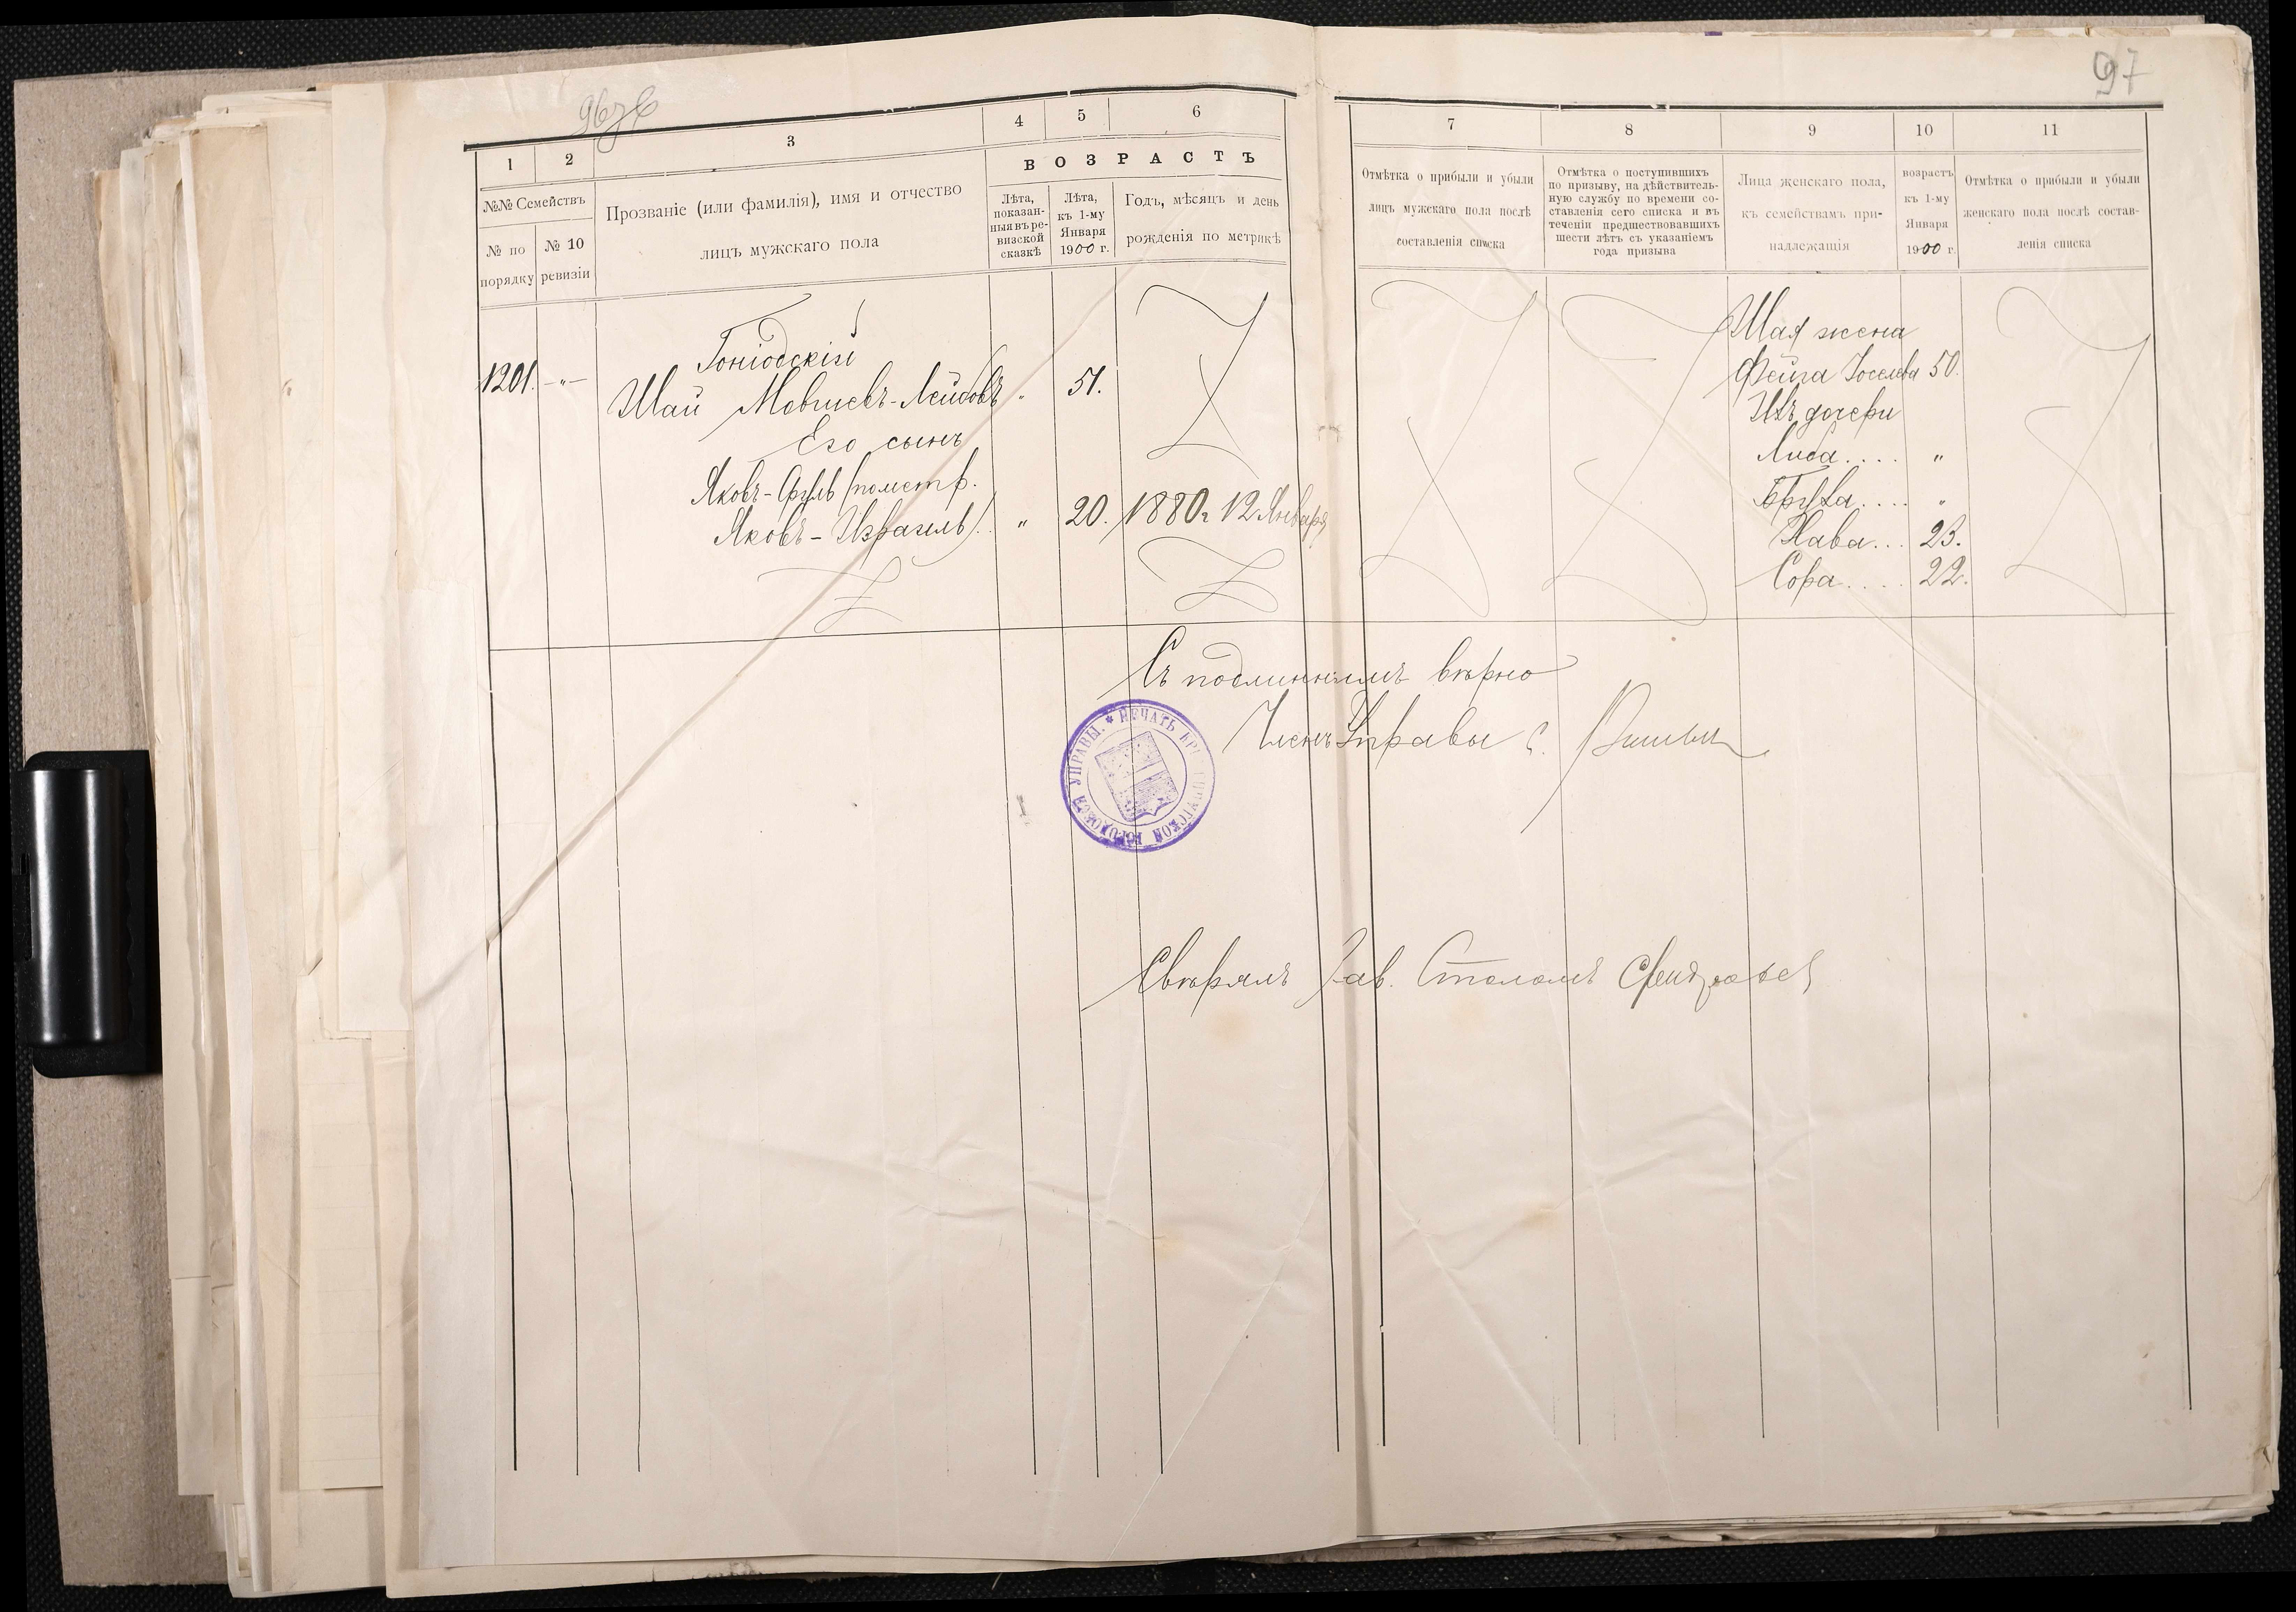 97
1
2
3
4
5
6
7
8
9
10
11
ВОЗРАСТЪ
№№ Семействъ
№ по порядку
№ 10 ревизіи
Прозваніе (или фамилія), имя и отчество
лицъ мужскаго пола
Лѣта,
показан-
ныя въ ре-
визской
сказкѣ
Лѣта,
къ 1-му
Января
1900 г.
Годъ, мѣсяцъ и день
рожденія по метрикѣ
Отмѣтка о прибыли и убыли
лицъ мужскаго пола послѣ
составленія списка
Отмѣтка о поступившихъ
по призыву, на дѣйствитель-
ную службу по времени со-
ставленія сего списка и въ
теченіи предшествовавшихъ
шести лѣтъ съ указаніемъ
года призыва
Лица женскаго пола,
къ семействамъ при-
надлежащія
возрастъ
къ 1-му
Января
1900 г.
Отмѣтка о прибыли и убыли
женскаго пола послѣ состав-
ленія списка
Гоніодскій
1201. -„- Шай Мовшевъ-Лейбовъ „ 51.
Его сынъ
Яковъ-Сруль (по метр.
Яковъ-Израиль).. „ 20. 1880 г. 12 Января
Шая жена
Фейга Іоселева 50.
Ихъ дочери
Либа.... „
Бруха.... „
Хава... 23.
Сора.... 22.
Съ подлиннымъ вѣрно
Членъ Управы
ПЕЧАТЬ ГОРОДСКОЙ УПРАВЫ.
Свѣрялъ Зав. Столомъ